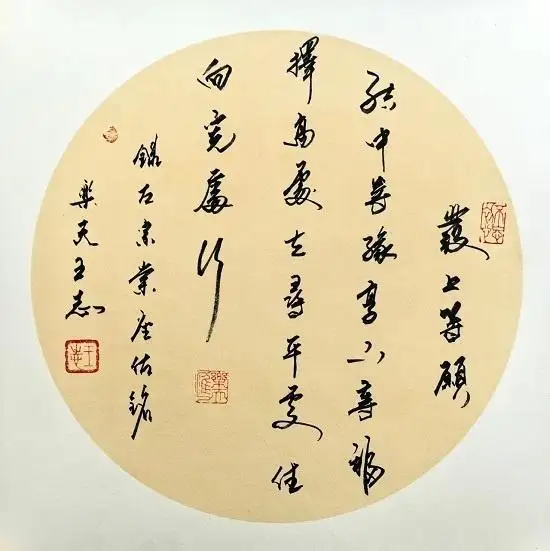 發上等願
結中等緣享下等福
擇高處立尋平處住
向寬處行
錄左宗棠座佑銘
樂天王志